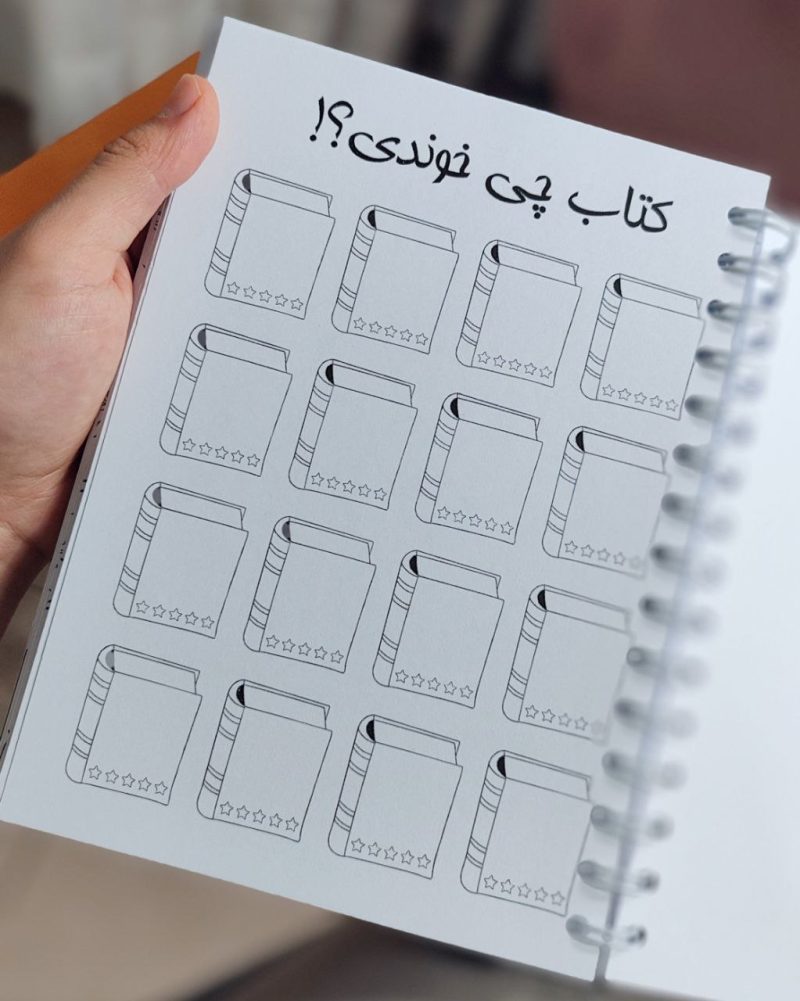 کتاب چی خوندی؟!